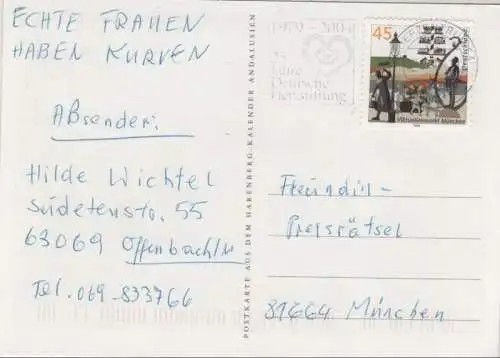 ECHTE FRAUEN
HABEN KURVEN
Absender:
Hilde Wichtel
Sudetenstr. 55
63069 Offenbach/M
Tel. 069-833766
POSTKARTE AUS DEM HARENBERG-KALENDER ANDALUSIEN
1979-2004
25
Jahre
Deutsche
Herzstiftung
45
Deutschland
Viktualienmarkt München
Freundin-
Preisrätsel
81664 München